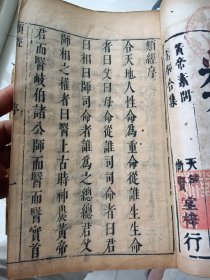 黃帝素問
合集
堂梓行
類經序
合天地人性命為重命從誰生生命
者曰父曰母命從誰司司命者曰君
曰相曰師司命者誰為之總總君父
師相之權者曰醫上古時神農黃帝
君而醫岐伯諸公師而醫醫實首
類經 序